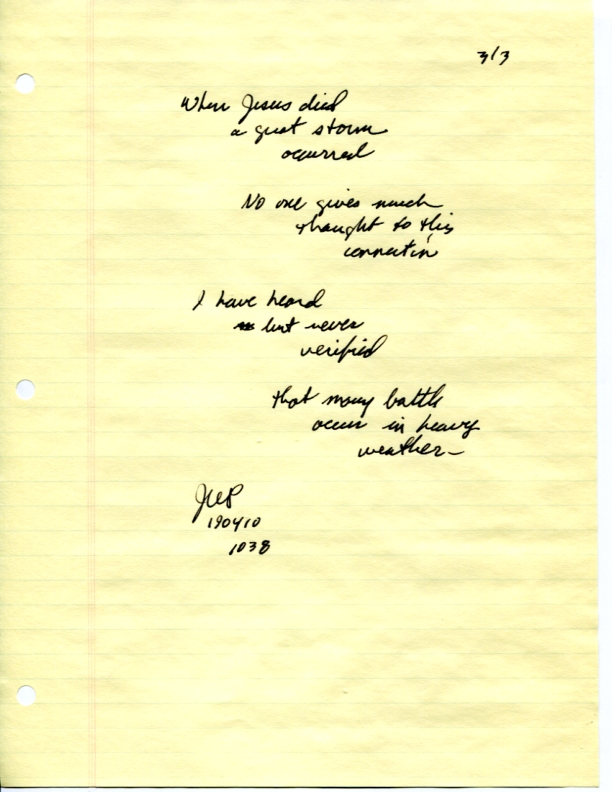 3/3
When Jesus died
a great storm
occurred
No one gives much
thought to this
connection
I have heard
but never
verified
that many battle
occur in heavy
weather-
190410
1038